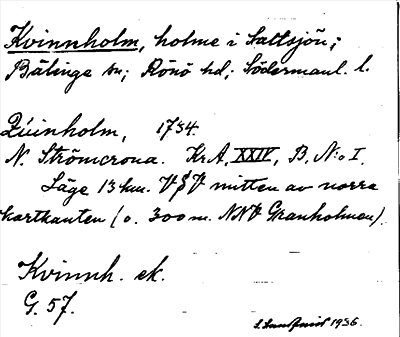 Kvinnholm, holme i Saltsjön;
Bälinge sn; Rönö hd; Södermanl. l.
Quinholm, 1734.
N. Strömcrona. Kr.A, XXIV, B, N:o 1.
Läge 13 km. V§V mitten av norra
kartkanten (o. 300 m. NNV Granholmen).
Kvinnh. ek.
G. 57.
1936.